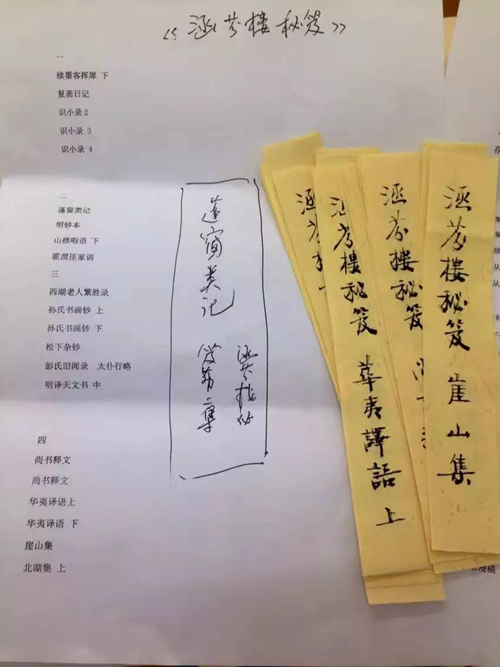 《涵芬楼秘笈》
一
续墨客挥犀 下
复斋日记
识小录2
识小录 3
识小录 4
二
蓬窗类记
明钞本
山樵暇语 下
霍渭厓家训
三
西湖老人繁胜录
孙氏书画钞 上
孙氏书画钞 下
松下杂钞
彭氏旧闻录 太仆行略
明译天文书 中
四
尚书释文
尚书释文
华夷译语上
华夷译语 下
崖山集
北湖集 上
蓬窗类记
涵芬樓秘笈 崖山集
涵芬樓秘笈
涵芬樓秘笈 華夷譯語 上
涵芬